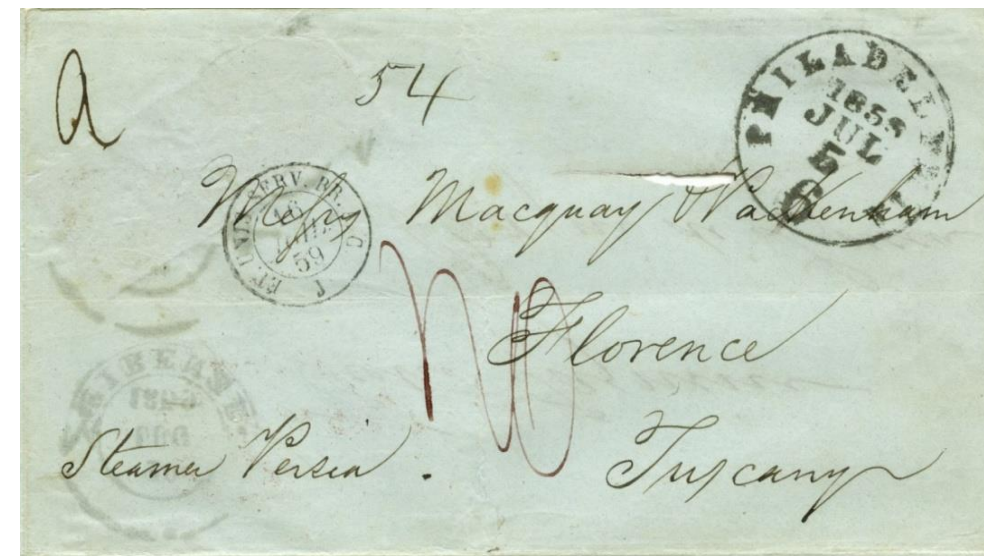 a
54
PHILADELPHIA
185
JUL
5
6
ET. UNIS SERV. BR. C
59
Messrs Macquay & Packenham
Florence
Steamer Persia .
Tuscany